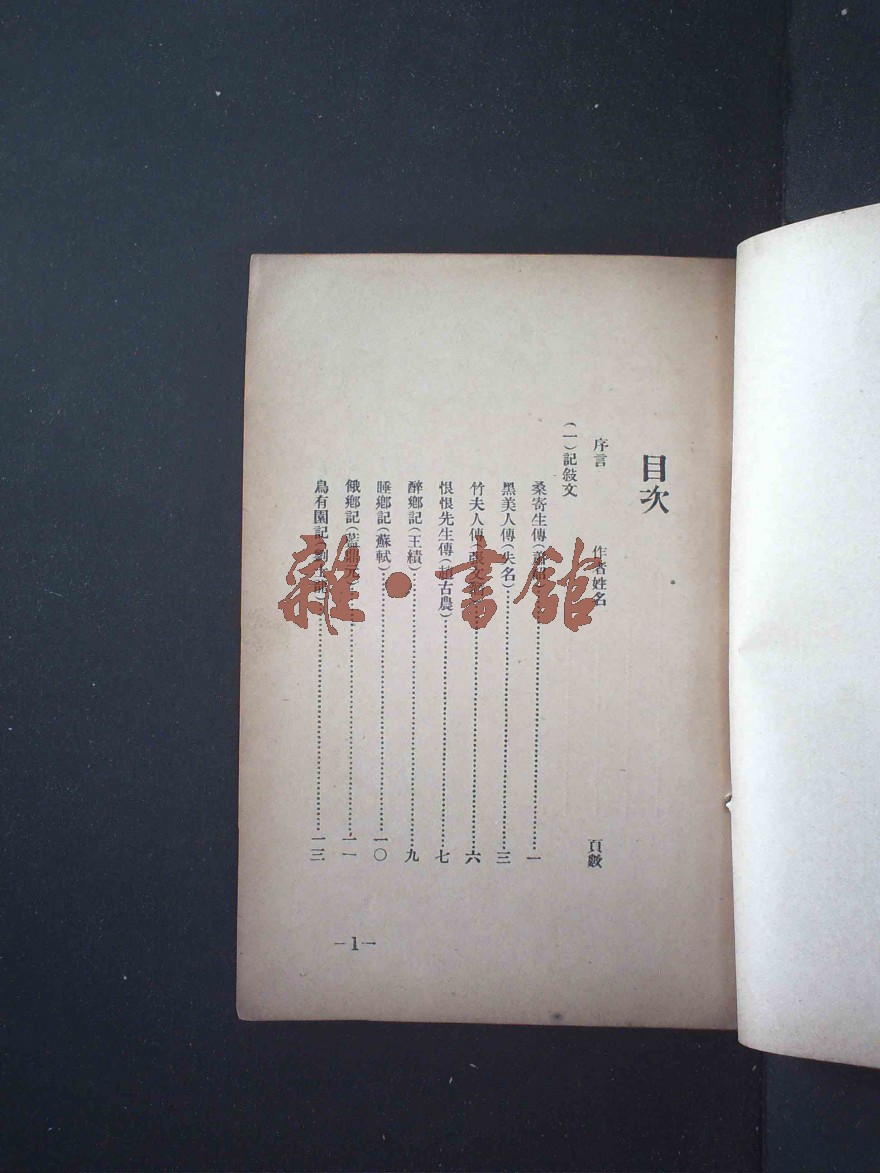 目次
序言 作者姓名 頁數
(一)記敍文
桑寄生傳(蕭韶)……一
黑美人傳(失名)……三
竹夫人傳(張文潛)……六
恨恨先生傳(趙古農)……七
醉鄉記(王績)……九
睡鄉記(蘇軾)……一〇
餓鄉記(藍鼎元)……一一
烏有園記(劉士龍)……一三
—1—
雜·書館